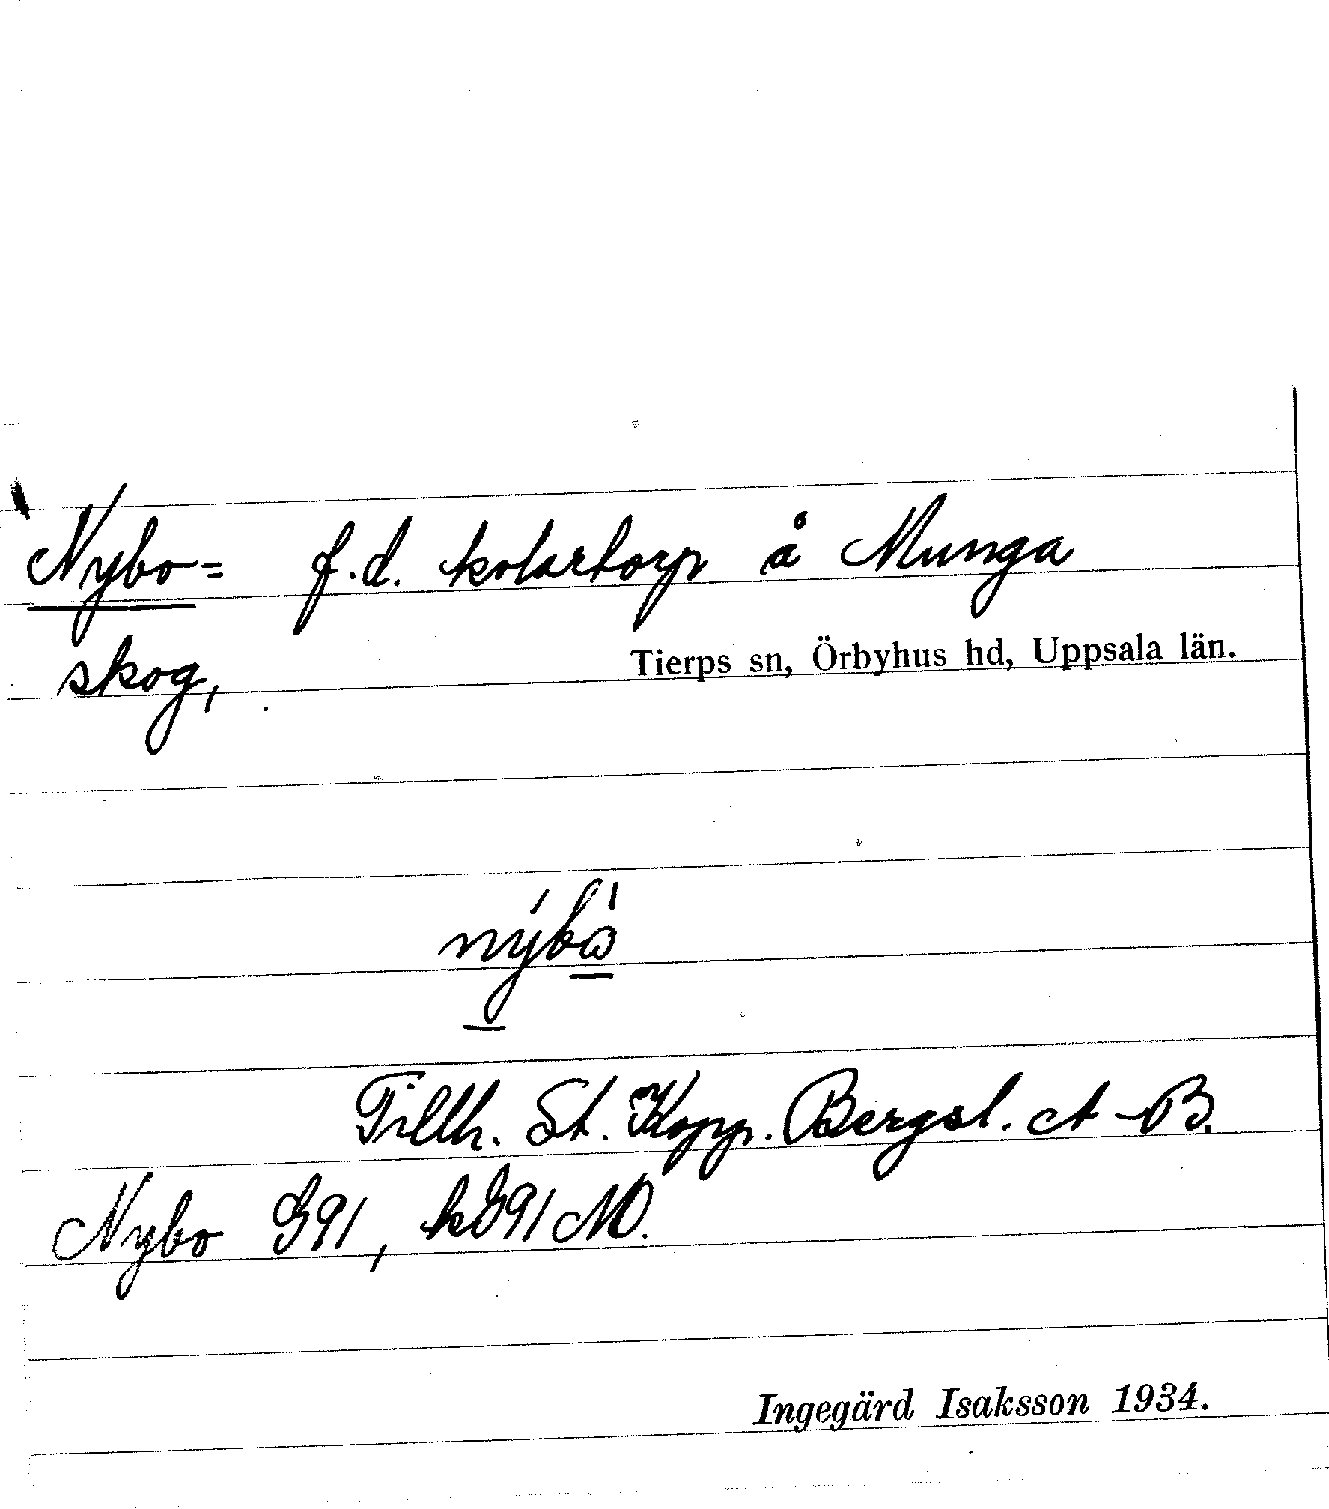 Nybo = f.d. kolartorp å Munga
skog,
Tierps sn, Örbyhus hd, Uppsala län.
Tillh. St. Kopp. Bergsl. A-B.
Nybo G91, kG91MO.
Ingegärd Isaksson 1934.